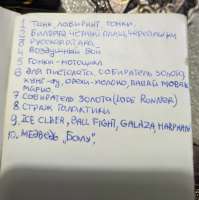 1 ТАНК, ЛАБИРИНТ, ГОНКИ.
2 БИЛЬЯРД, ЧЁРНЫЙ ПЛАЩ, ЧЕРЕПАШКИ
3 РУССКАЯ АТАКА
4 ВОЗДУШНЫЙ БОЙ
5 ГОНКИ-МОТОЦИКЛ
6 ДЛЯ ПИСТОЛЕТА, СОБИРАТЕЛЬ ЗОЛОТА,
КУНГ-ФУ, ОРЕХИ-МОЛОКО,
МАРИО.
7 СОБИРАТЕЛЬ ЗОЛОТА (LODE RUNNER)
8 СТРАЖ ГАЛАКТИКИ
9 ICE CLIBER, BALL FIGHT, GALAZA,
10 МЕДВЕДЬ „БАЛУ".